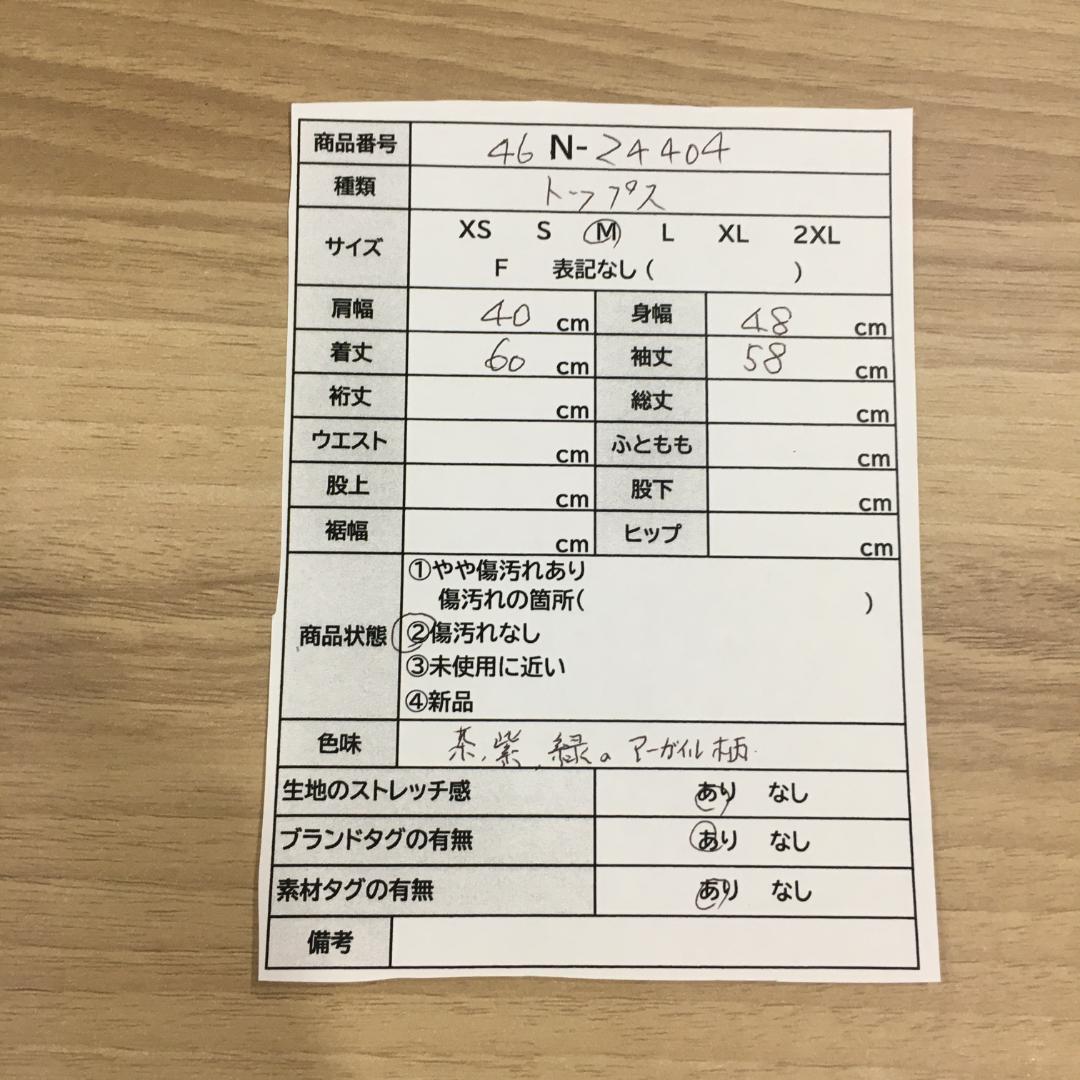 商品番号 46 N-24404
種類 トップス
サイズ XS S M L XL 2XL
F 表記なし ( )
肩幅 40 cm 身幅 48 cm
着丈 60 cm 袖丈 58 cm
裄丈 cm 総丈 cm
ウエスト cm ふともも cm
股上 cm 股下 cm
裾幅 cm ヒップ cm
商品状態 ①やや傷汚れあり
傷汚れの箇所( )
②傷汚れなし
③未使用に近い
④新品
色味 茶、紫、緑。アーガイル柄
生地のストレッチ感 あり なし
ブランドタグの有無 あり なし
素材タグの有無 あり なし
備考